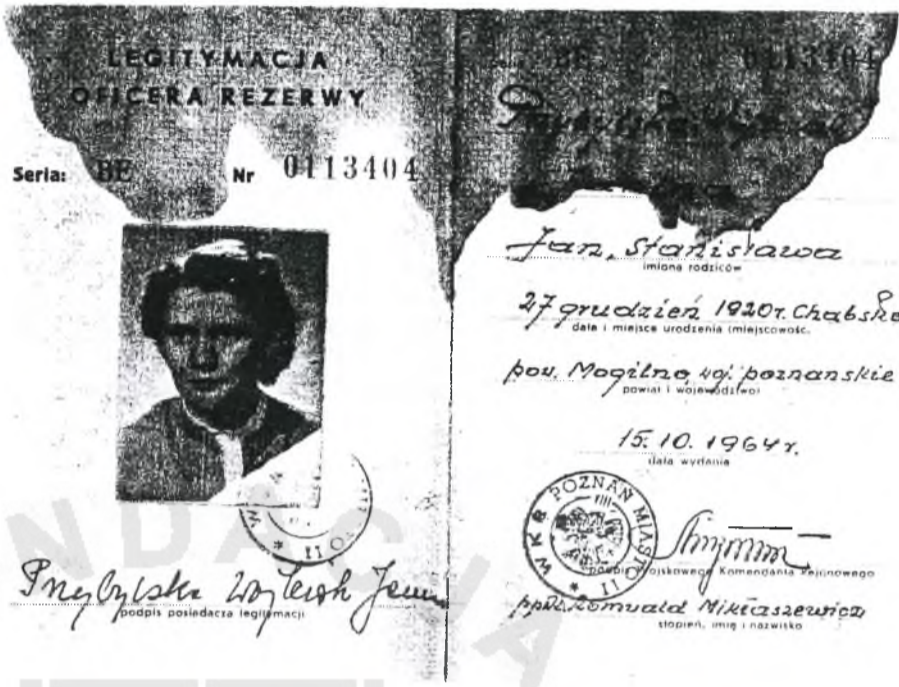 LEGITYMACJA
OFICERA REZERWY
Seria: BE Nr 0113404
Przybylska Wojtczak
podpis posiadacza legitymacji
BE 0113404
Jan, Stanisława
imiona rodziców
27 grudzień 1920r. Chabsko
data i miejsce urodzenia (miejscowość,
pow. Mogilno, woj. poznanskie
powiat i województwo)
15. 10. 1964 r.
data wydania
WKR POZNAŃ MIASTO II
podpis Wojskowego Komendanta Rejonowego
ppłk. Romuald Mikłaszewicz
stopień, imię i nazwisko
NDACJA